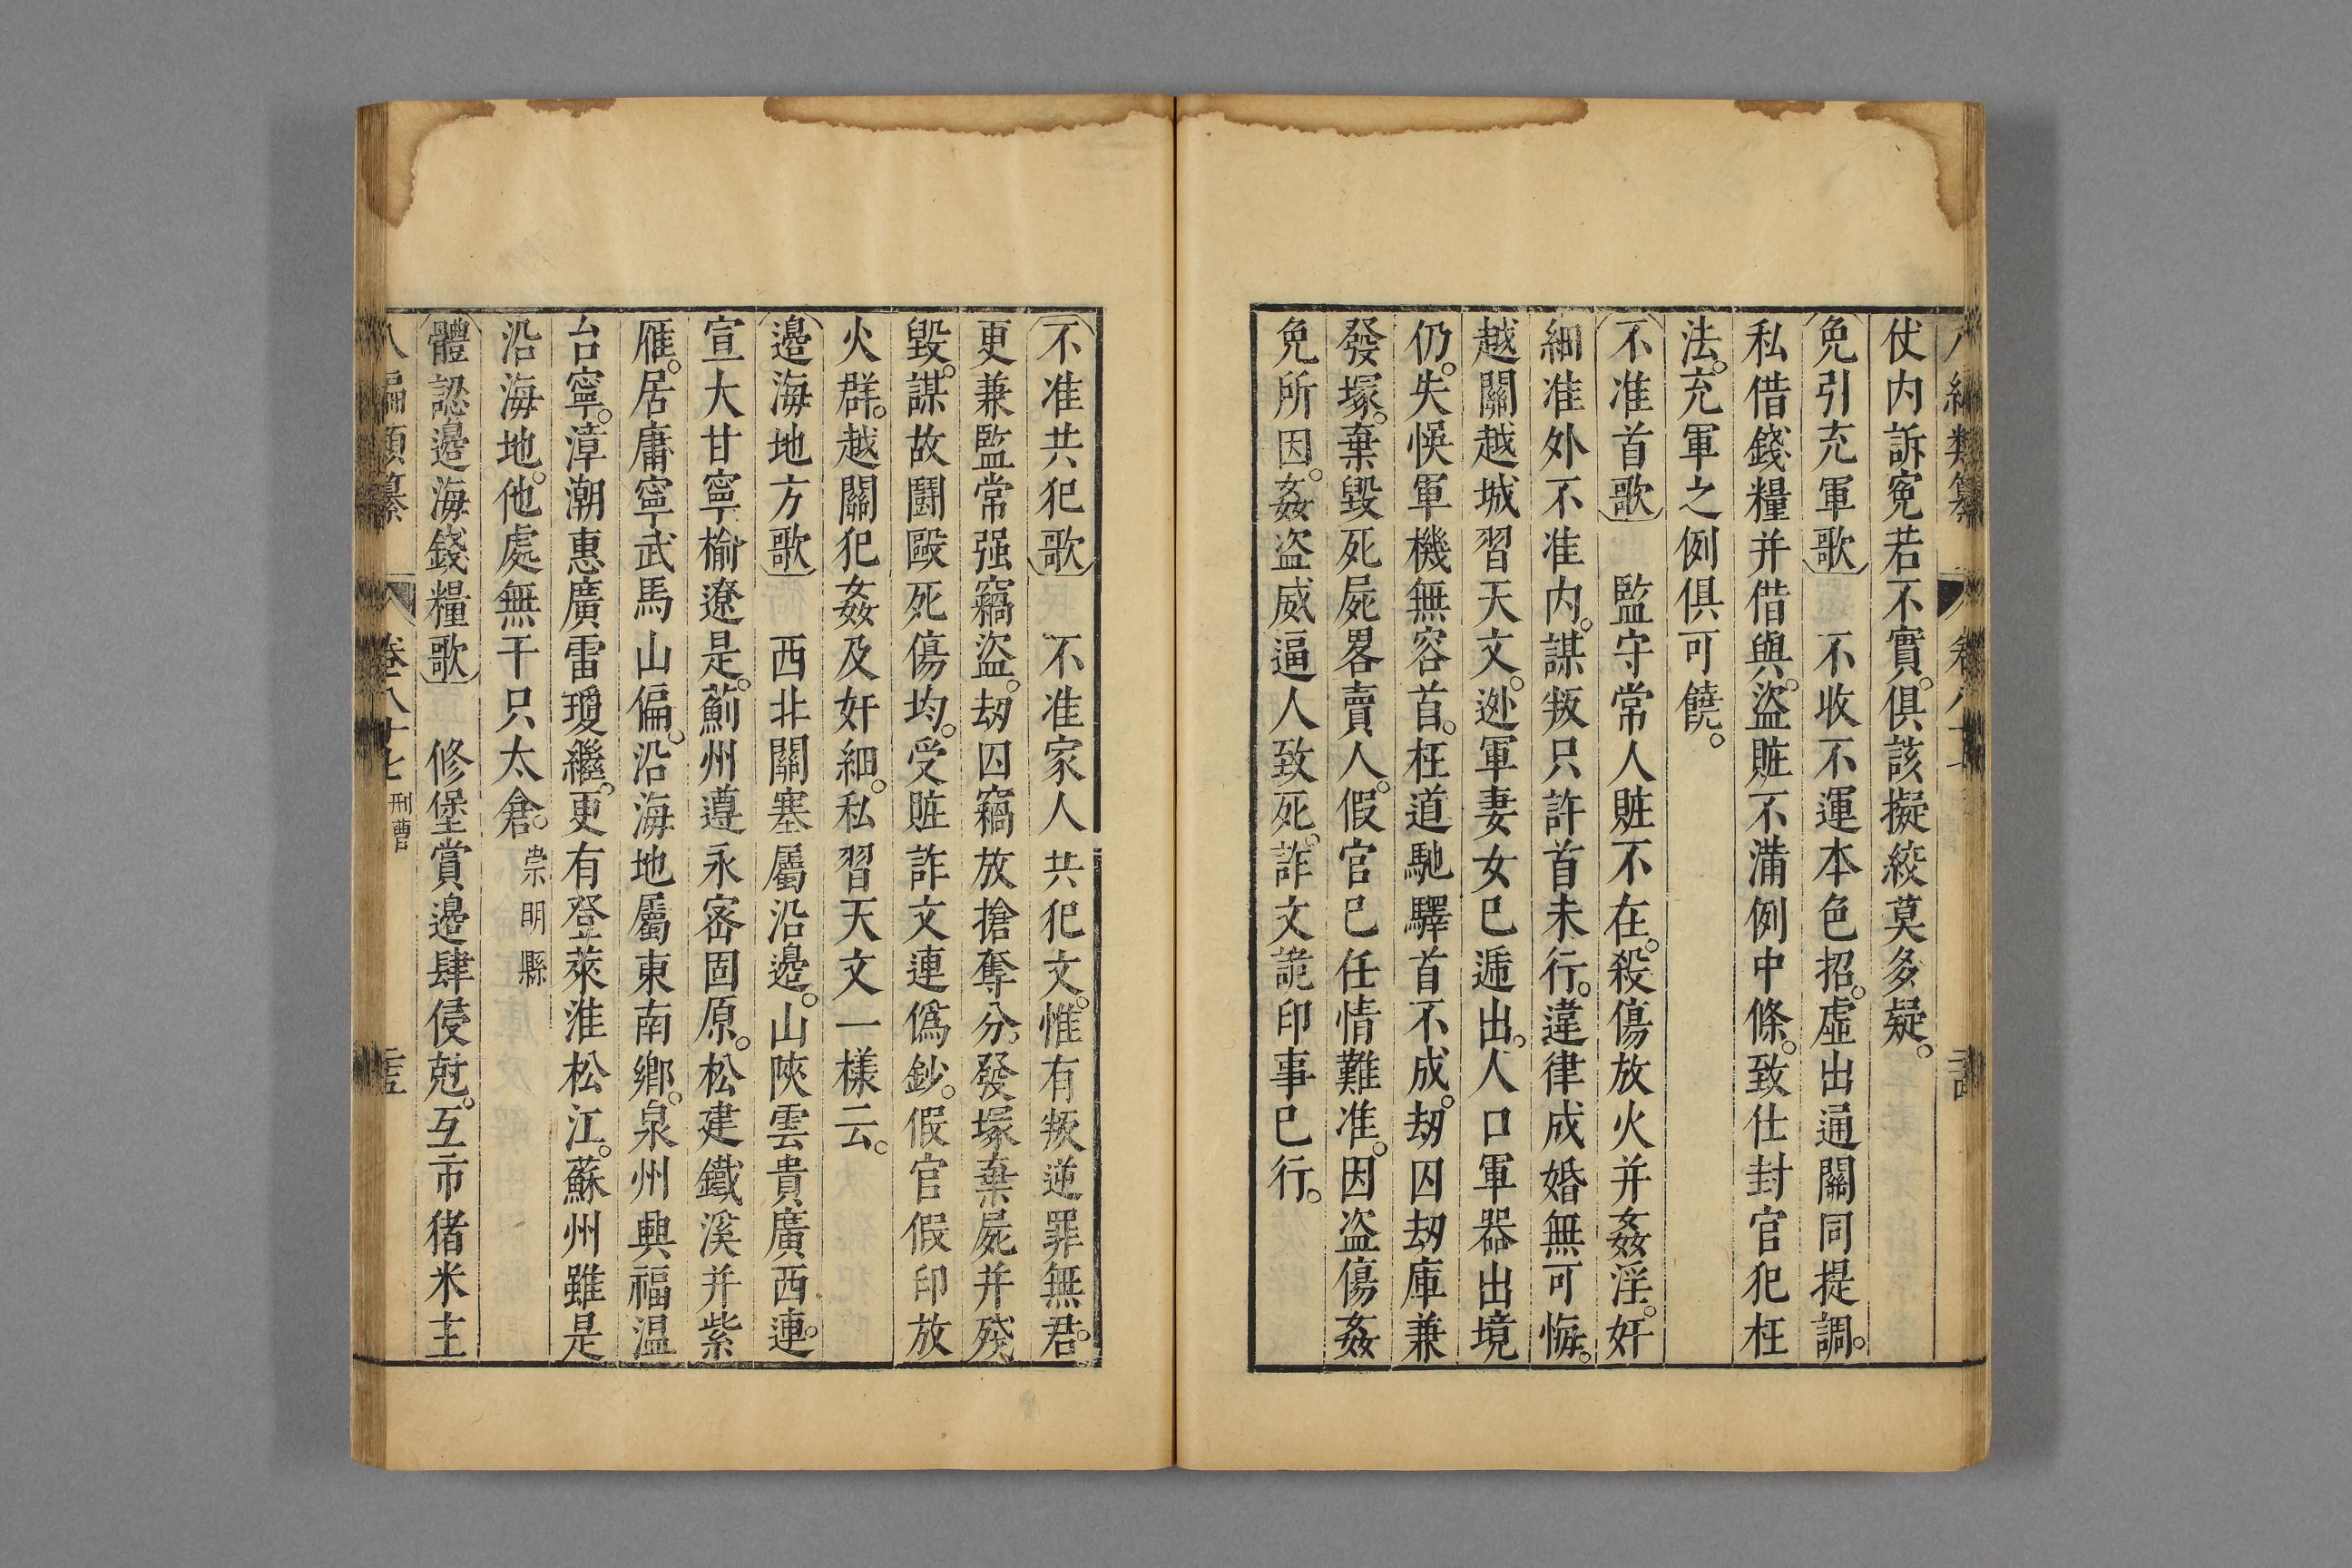 仗内訴寃若不實。俱該擬絞莫多疑。
免引充軍歌　不收不運本色招。虛出通關同提調。
私借錢糧并借與。盜賍不滿例中條。致仕封官犯枉
法。充軍之例俱可饒。
不准首歌　監守常人賍不在。殺傷放火并姦淫。奸
細准外不准内。謀叛只許首未行。違律成婚無可悔。
越關越城習天文。逃軍妻女已逓出。人口軍器出境
仍。失悞軍機無容首。枉道馳驛首不成。刼囚刼庫兼
發塚。棄毀死屍畧賣人。假官已任情難准。因盜傷姦
免所因。姦盜威逼人致死。詐文詭印事已行。
不准共犯歌　不准家人共犯文。惟有叛逆罪無君。
更兼監常强竊盜。刼囚竊放搶奪分。發塚棄屍并殘
毀。謀故鬪毆死傷均。受賍詐文連僞鈔。假官假印放
火群。越關犯姦及奸細。私習天文一樣云。
邊海地方歌　西北關塞屬沿邊。山陝雲貴廣西連。
宣大甘寧榆遼是。薊州遵永密固原。松建鐵溪并紫
雁。居庸寧武馬山偏。沿海地屬東南鄉。泉州興福温
台寧。漳潮惠廣雷瓊繼。更有登萊淮松江。蘇州雖是
沿海地。他處無干只太倉。崇明縣
體認邊海錢糧歌　修堡賞邊肆侵尅。互市猪米主
八編類纂　卷八十七　刑曹